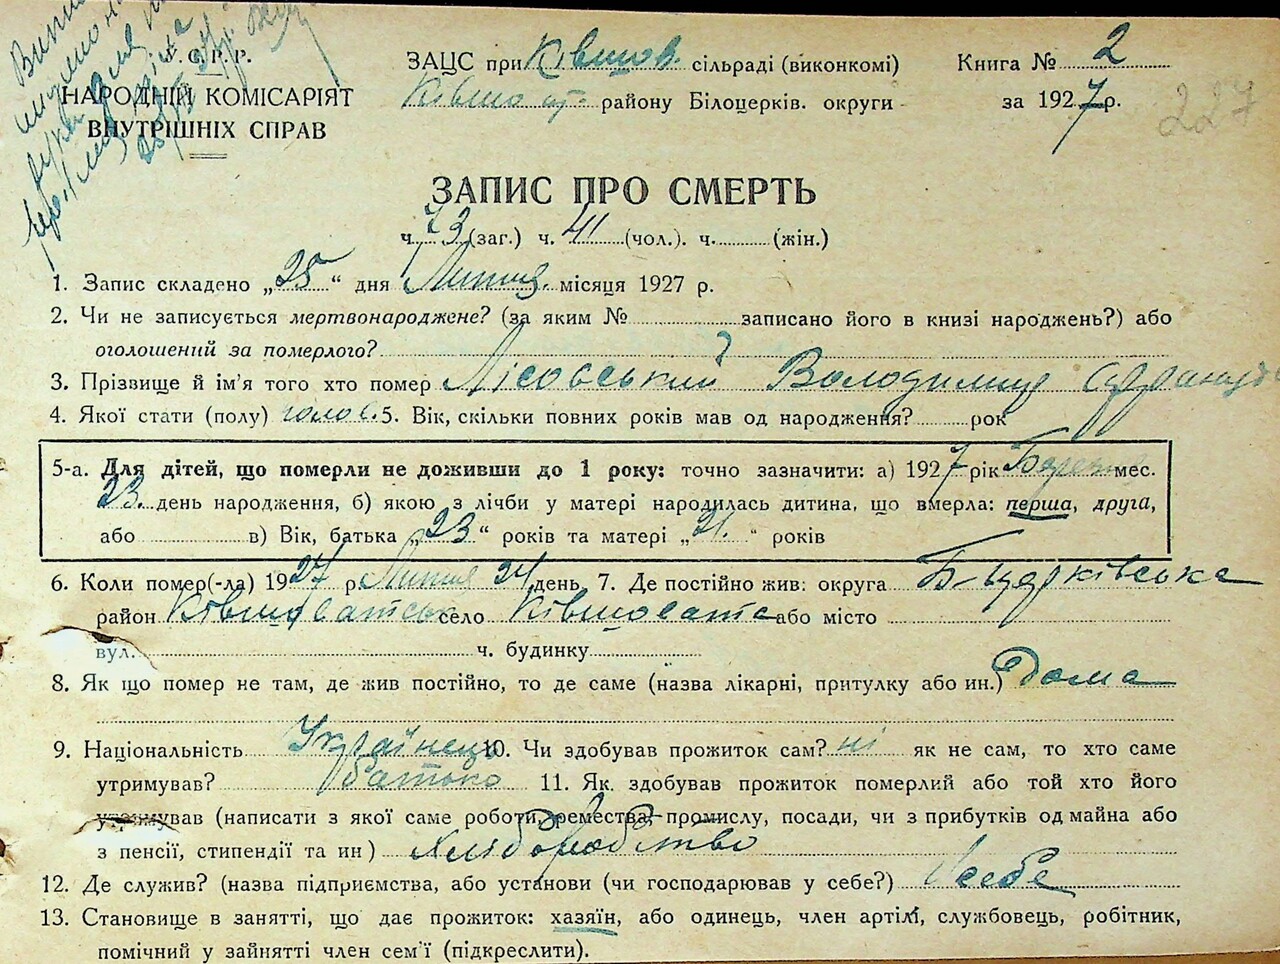 У.С.Р.Р.
НАРОДНІЙ КОМІСАРІЯТ
ВНУТРІШНІХ СПРАВ
ЗАЦС при Ківшов. сільраді (виконкомі)
Ківшоват. району Білоцерків. округи
Книга № 2
за 1927 р.
227
ЗАПИС ПРО СМЕРТЬ
ч. 73 (заг.) ч. 41 (чол.). ч. (жін.)
1. Запис складено „25“ дня Липня місяця 1927 р.
2. Чи не записується мертвонароджене? (за яким № записано його в книзі народжень?) або
оголошений за померлого?
3. Прізвище й ім'я того хто помер Лісовський Володимир
4. Якої стати (полу) чолов. 5. Вік, скільки повних років мав од народження? рок
5-а. Для дітей, що померли не доживши до 1 року: точно зазначити: а) 1927 рік Березня мес.
23 день народження, б) якою з лічби у матері народилась дитина, що вмерла: перша, друга,
або в) Вік, батька „23“ років та матері „21.“ років
6. Коли помер(-ла) 1927 р. Липня 24 день, 7. Де постійно жив: округа Б-Церківська
район Ківшоватськ село Ківшовата або місто
вул. ч. будинку
8. Як що помер не там, де жив постійно, то де саме (назва лікарні, притулку або ин.) Дома
9. Національність Українець 10. Чи здобував прожиток сам? ні як не сам, то хто саме
утримував? батько 11. Як здобував прожиток померлий або той хто його
утримував (написати з якої саме роботи, ремества, промислу, посади, чи з прибутків од майна або
з пенсії, стипендії та ин) Хліборобство
12. Де служив? (назва підприємства, або установи (чи господарював у себе?) У себе
13. Становище в занятті, що дає прожиток: хазяїн, або одинець, член артілі, службовець, робітник,
помічний у зайнятті член сем'ї (підкреслити).